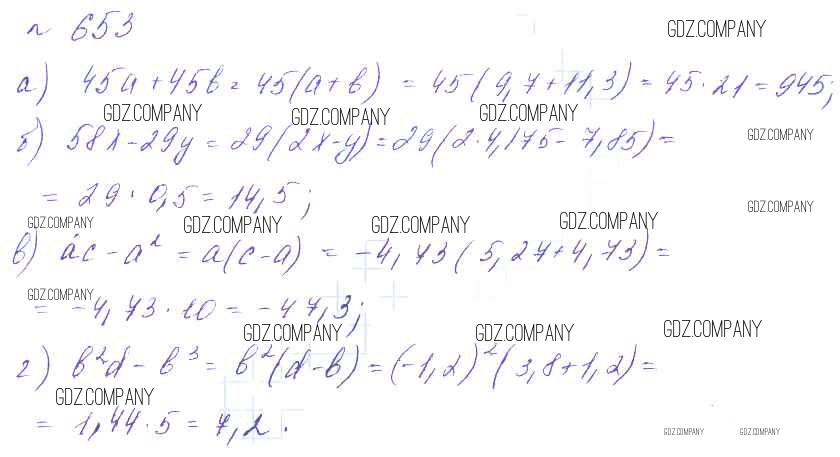 № 653
GDZ.COMPANY
а) 45a + 45b = 45(a + b) = 45(9,7 + 11,3) = 45 · 21 = 945;
GDZ.COMPANY GDZ.COMPANY GDZ.COMPANY
б) 58x - 29y = 29(2x - y) = 29(2 · 4,175 - 7,85) =
GDZ.COMPANY
= 29 · 0,5 = 14,5;
GDZ.COMPANY
GDZ.COMPANY GDZ.COMPANY GDZ.COMPANY GDZ.COMPANY
в) ac - a² = a(c - a) = -4,73(5,27 + 4,73) =
GDZ.COMPANY
= -4,73 · 10 = -47,3;
GDZ.COMPANY GDZ.COMPANY GDZ.COMPANY
г) b²d - b³ = b²(d - b) = (-1,2)²(3,8 + 1,2) =
GDZ.COMPANY
= 1,44 · 5 = 7,2.
GDZ.COMPANY GDZ.COMPANY